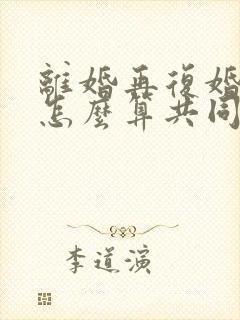 離婚再復婚
怎麼算共同
李道演